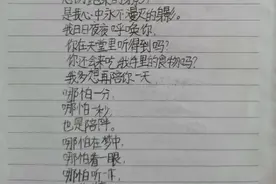 是我心中永不漫灭的身影。
我日日夜夜呼唤你,
你在天堂里听得到吗?
你还会来吃我手里的食物吗?
我多想再陪你一天
哪怕一分,
哪怕一秒,
也是陪伴。
哪怕在梦中,
哪怕看一眼,
哪怕听一声,